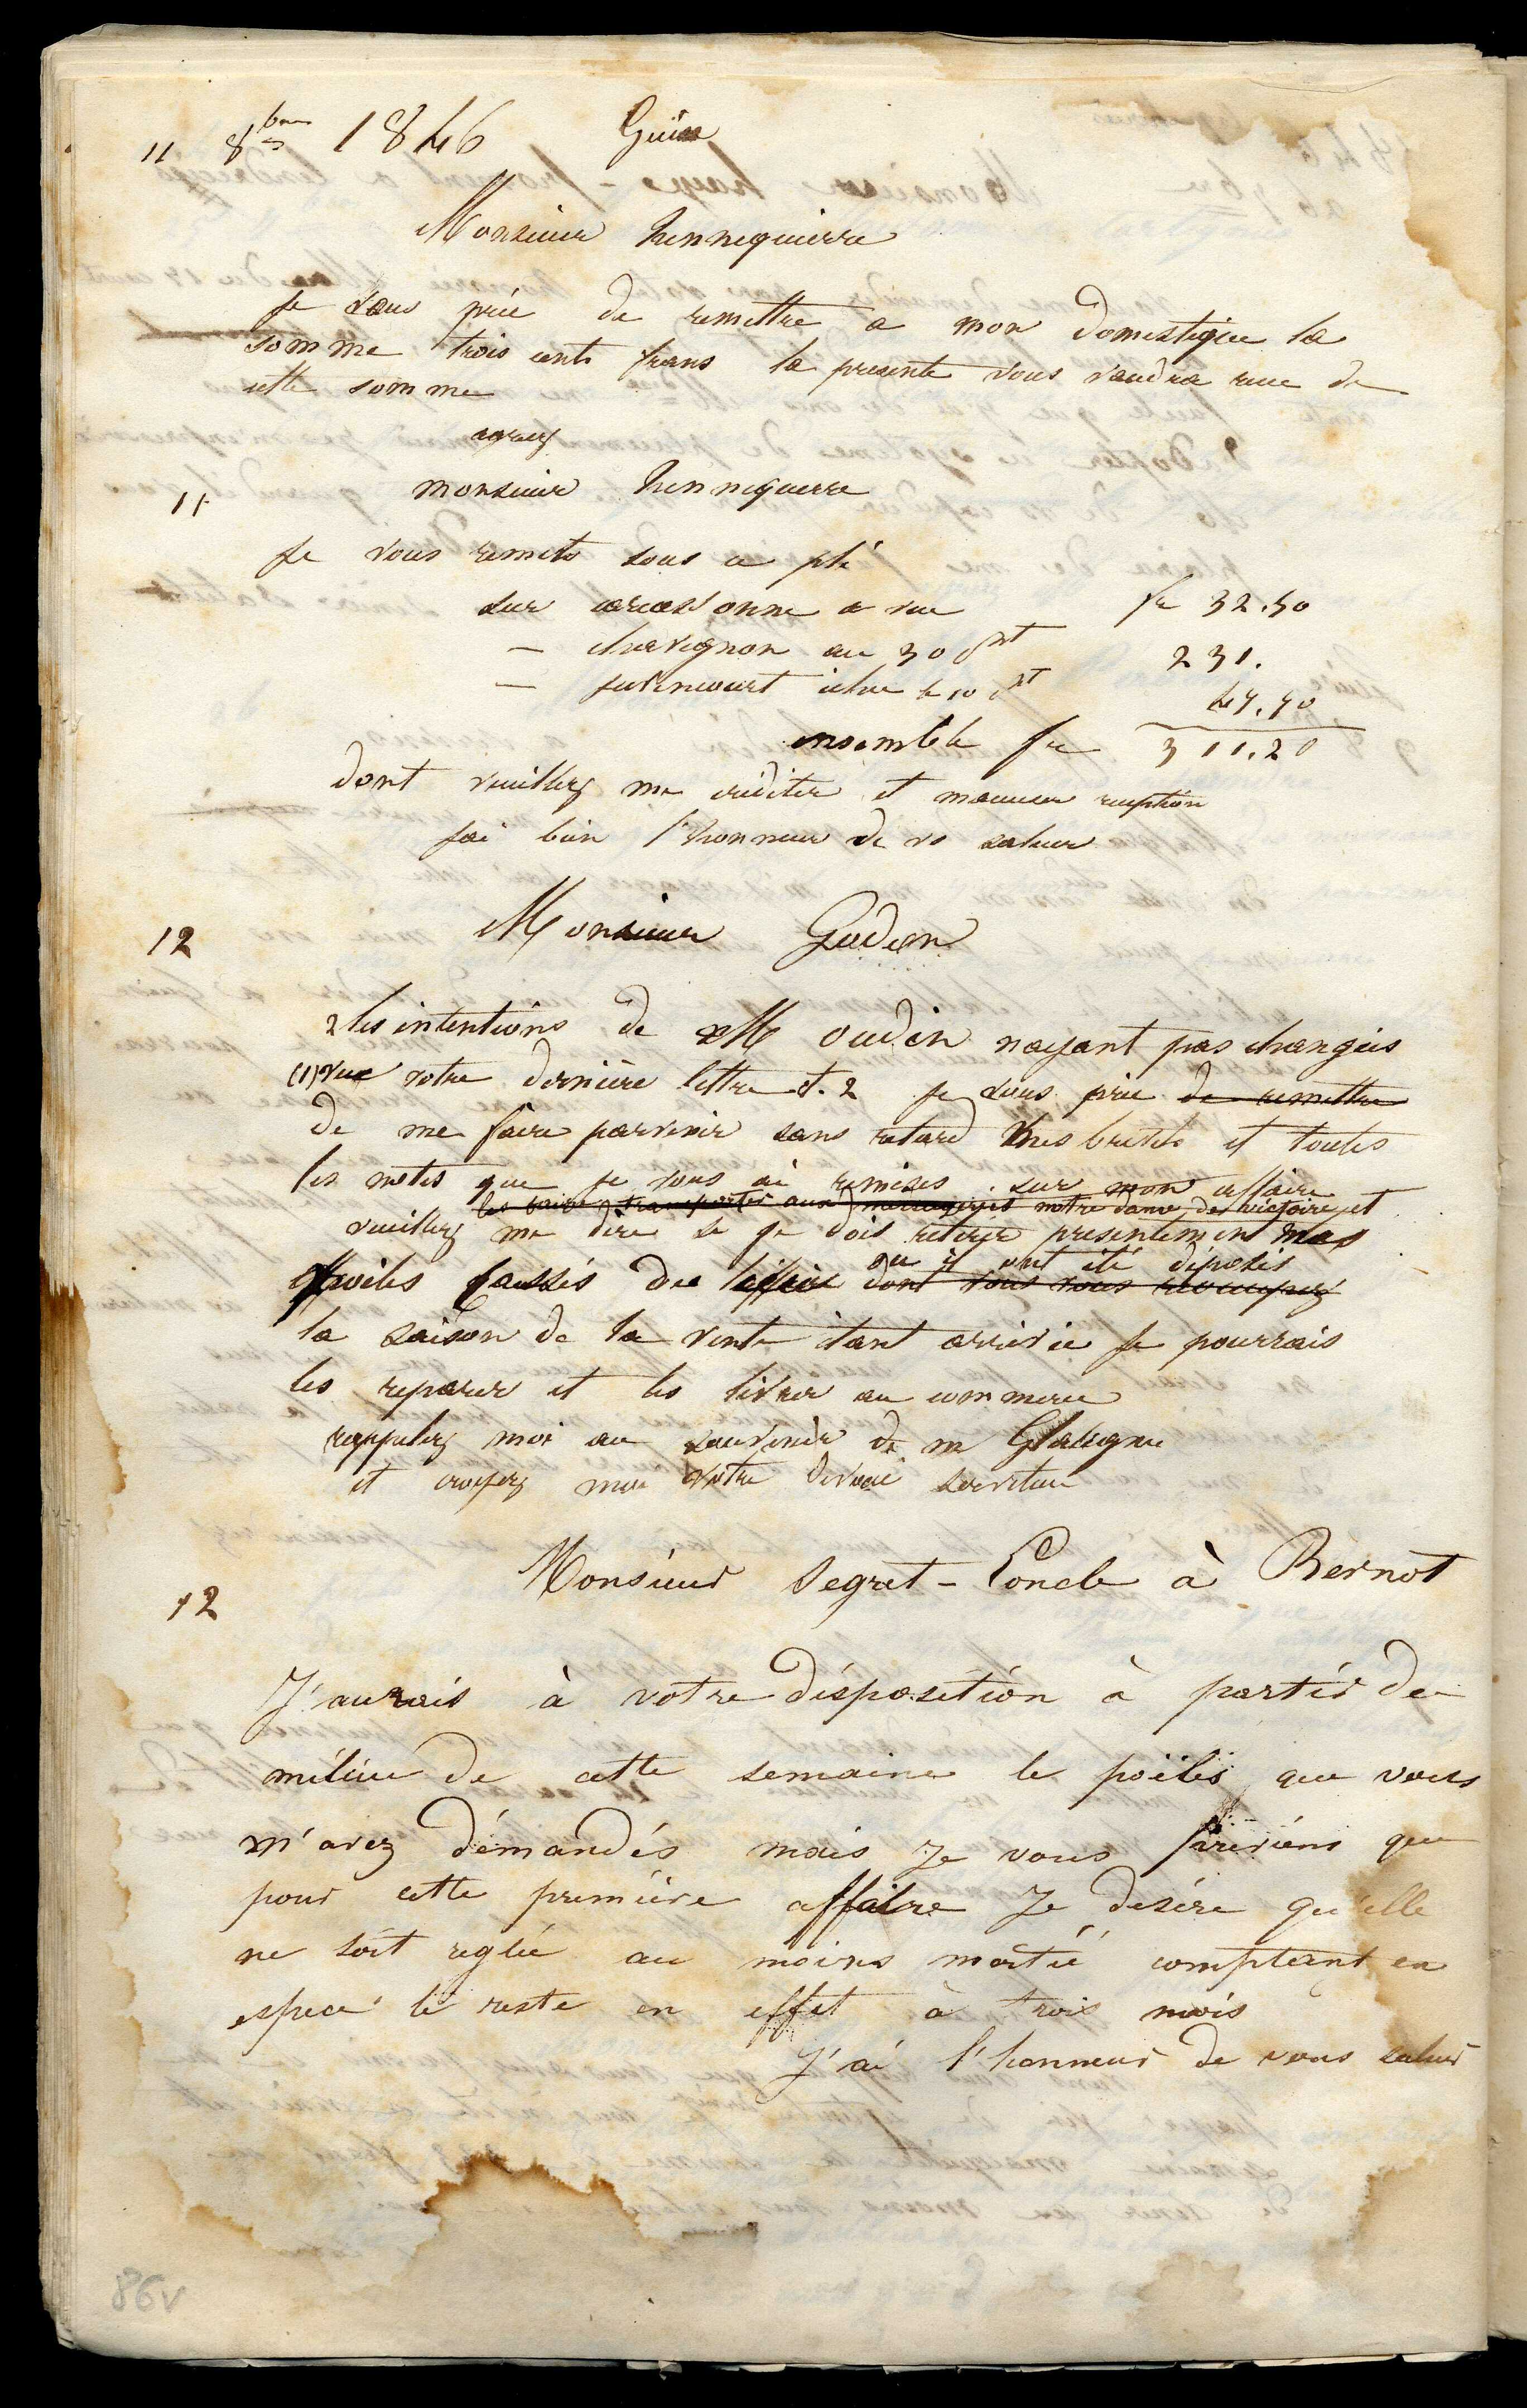 11 8bre 1846 Guise
Monsieur hennequierre
je vous prie de remettre a mon domestique la
somme trois cents frans la presente vous vaudra recu de
cette somme
agreez
11 monsieur hennequerre
Je vous remets sous ce pli
sur carcassonne a vue fr 32.50
— chavignon au 30 231.
— le 10 47.70
ensemble fr 311.20
dont veuillez me créditer et maccuser reception
jai bien l'honneur de vs saluer
12 Monsieur Gudin
2 les intentions de M oudin nayant pas changées
(1) vue votre dernière lettre et. 2 je vous prie de remettre
de me faire parvenir sans retard mes brevets et toutes
les notes que je vous ai remises sur mon affaire
les faire transporter aux messageries notre dame des victoires et
veuillez me dire si je dois retirer presentement mes
poiles cassés de ou il ont été déposés
dont vous vous
la saison de la vente étant arrivée je pourrais
les reparer et les livrer au commerce
rappelez moi au souvenir de m
et croyez moi votre dévoué serviteur
12 Monsieur Segret-Poncle à Bernot
J'aurais à votre disposition à partir de
milieu de cette semaine le poëles que vous
m'avez démandés mais Je vous préviens que
pour cette première affaire Je desire qu'elle
ne soit reglée au moins moitié comptant en
espece le reste en effet à trois mois
J'ai l'honneur de vous saluer
86v